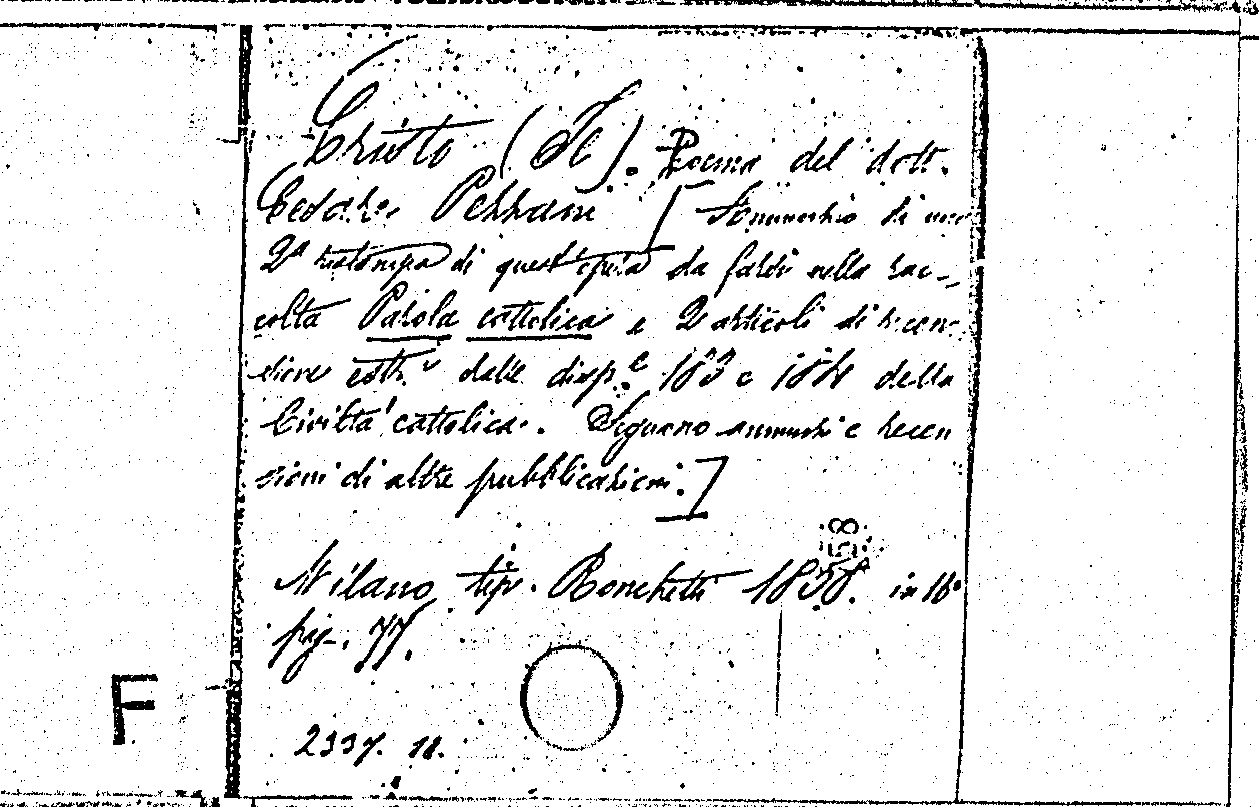 Cristo (Il). Poema del dott.
Cesare Perrani [Annunchio di una
2ª ristampa di quest'opera da farsi nella rac-
colta Parola cattolica e 2 articoli di recen
sione estr. dalle disp.e 183 e 184 della
Civiltà cattolica. Seguono annunzi e recen
sioni di altre pubblicazioni.]
58
Milano tip. Ronchetti 1858. in 16º
pag. 77.
F
2337. 11.